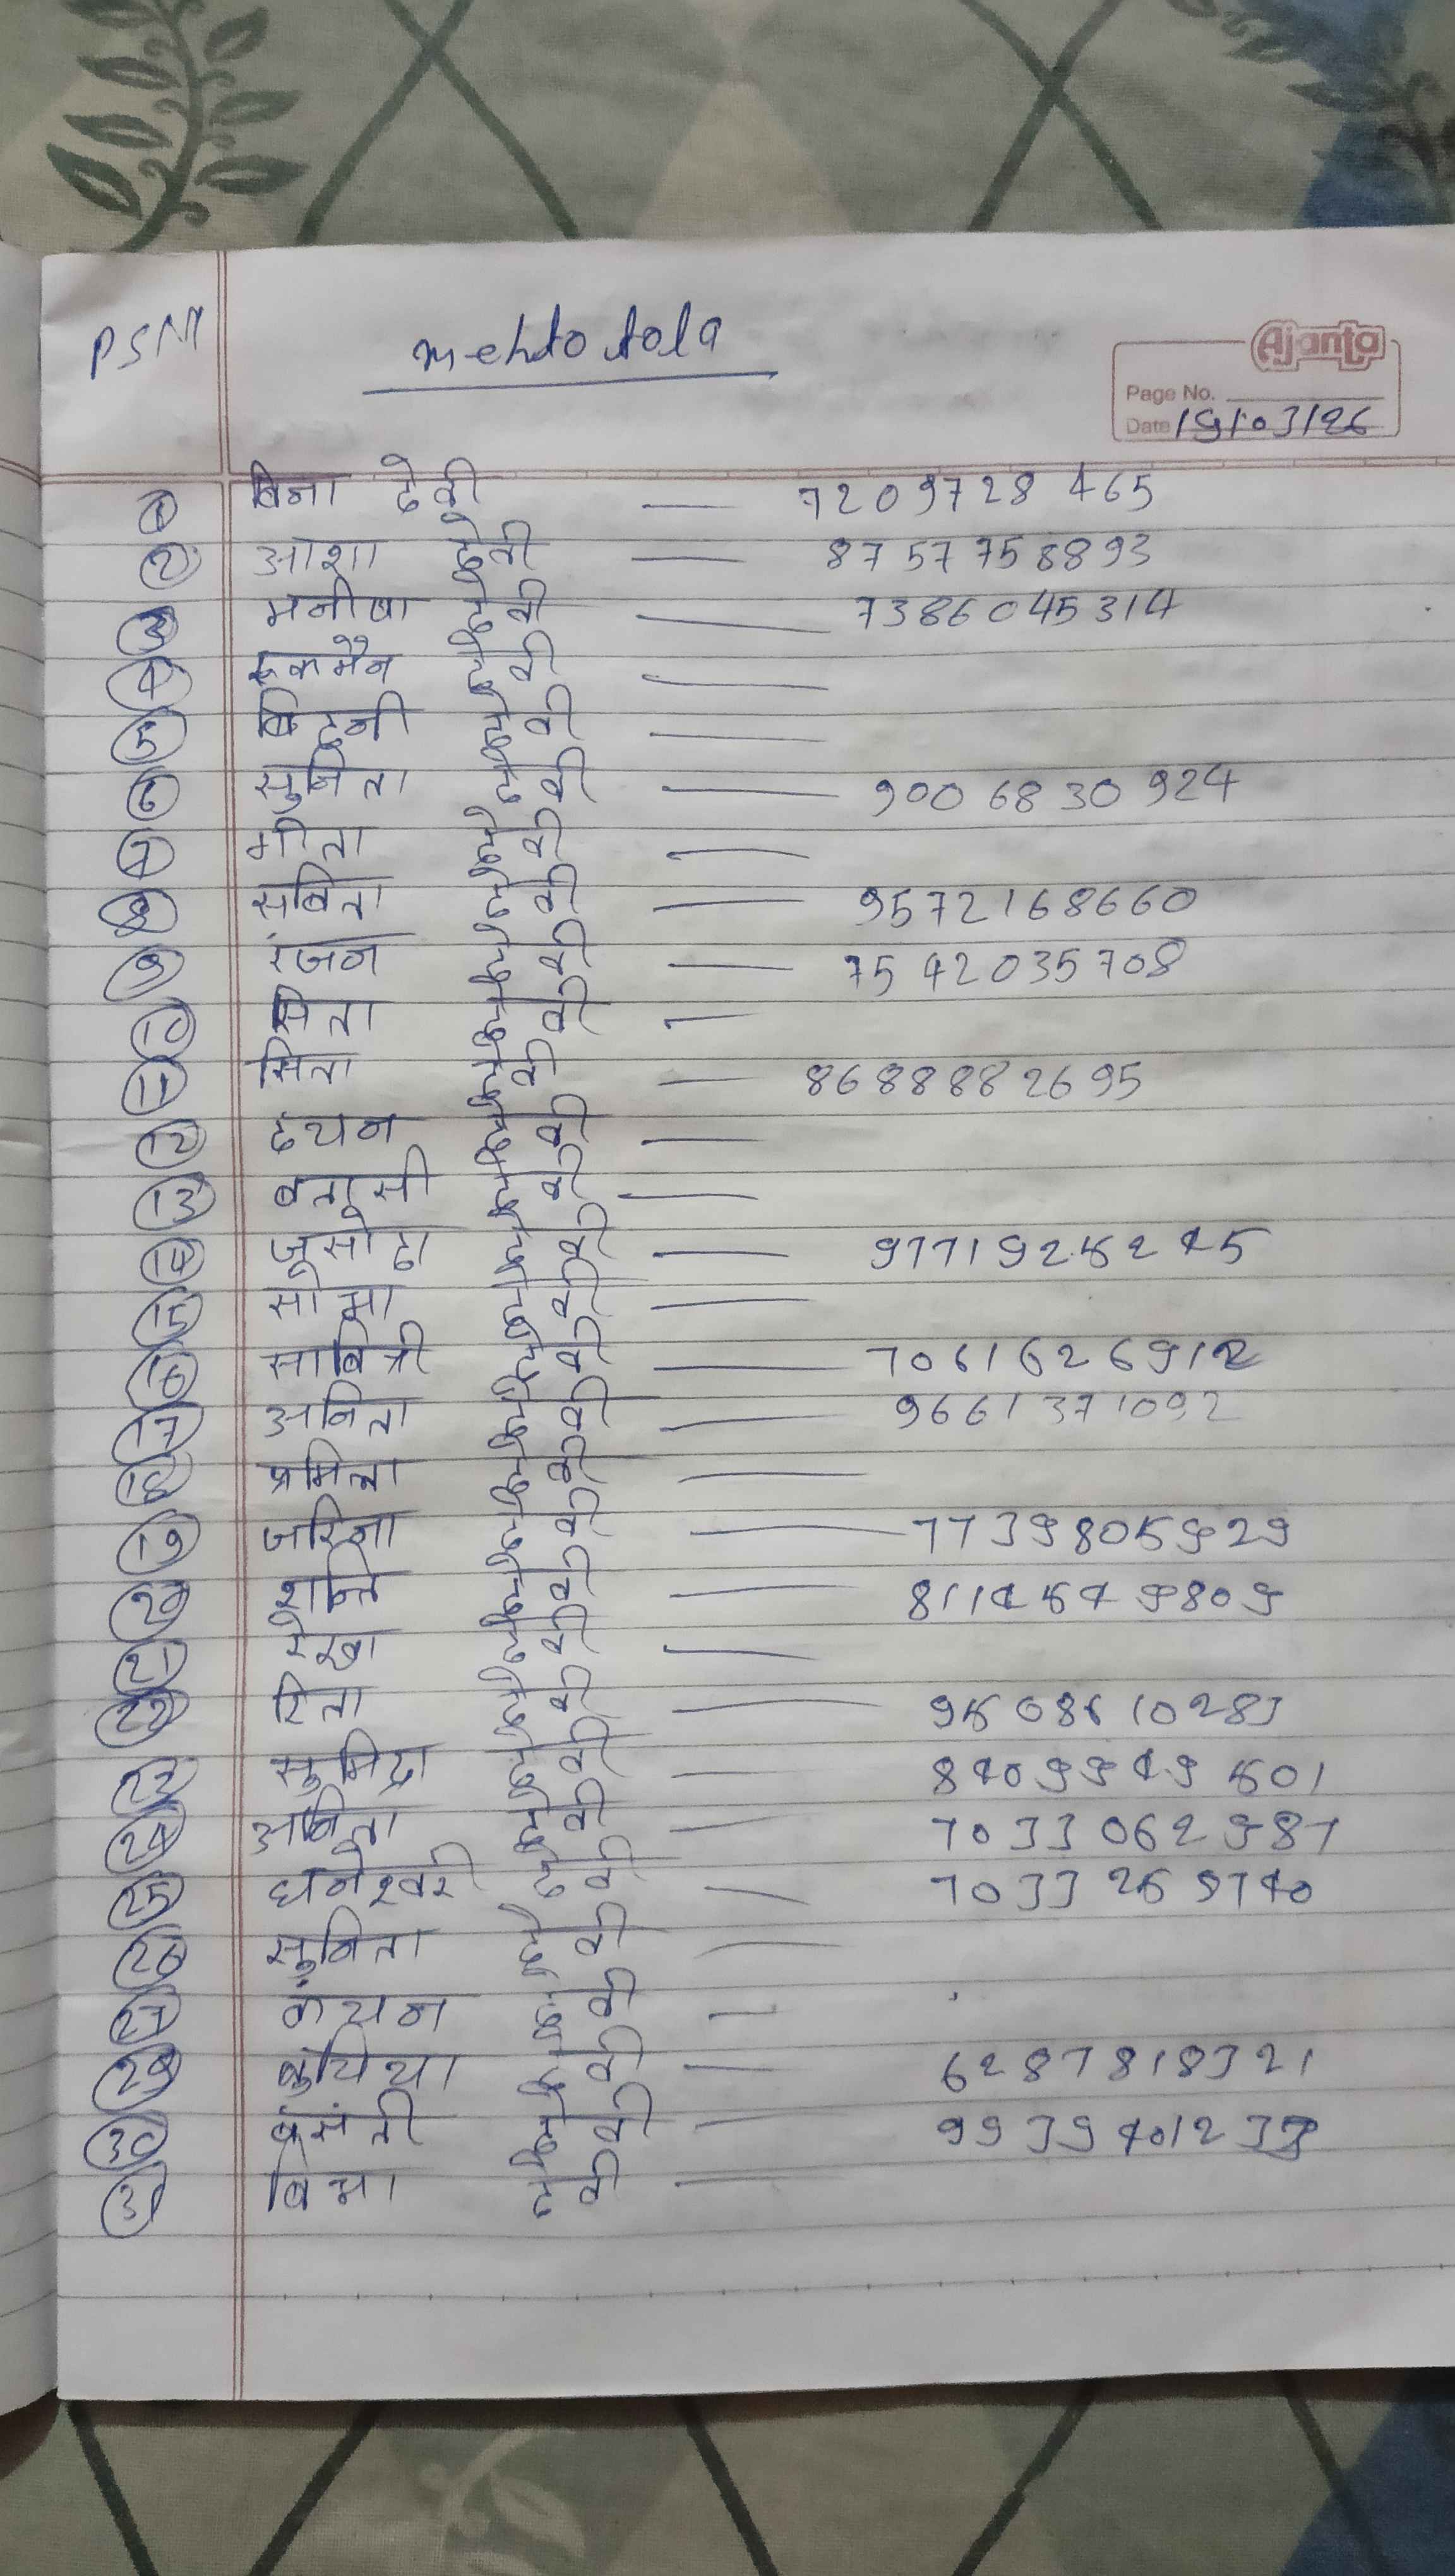 PSM mehto tola
Ajanta
Page No.
Date 19/03/26
1 बिना देवी — 7209728465
2 आशा देवी — 8757758893
3 मनीषा देवी — 7386045314
4 रुकमैन देवी —
5 बिटुनी देवी —
6 सुनिता देवी — 9006830924
7 गीता देवी —
8 सबिता देवी — 9572168660
9 रंजन देवी — 7542035708
10 सिता देवी —
11 मिता देवी — 8688882695
12 देवी —
13 देवी —
14 जूसोदा देवी — 9771925245
15 सोभा देवी —
16 साबित्री देवी — 7061626912
17 अनिता देवी — 9661371092
18 प्रमिला देवी —
19 जरिना देवी — 7739805929
20 शान्ति देवी — 8114549809
21 रेखा देवी —
22 रिता देवी — 9508610283
23 सुमित्रा देवी — 8409949501
24 अनिता देवी — 7033062987
25 धनेश्वरी देवी — 7033269740
26 सुनिता देवी —
27 कंचन देवी —
28 बुधिया देवी — 6287818321
30 बसंती देवी —
31 बिभा देवी —